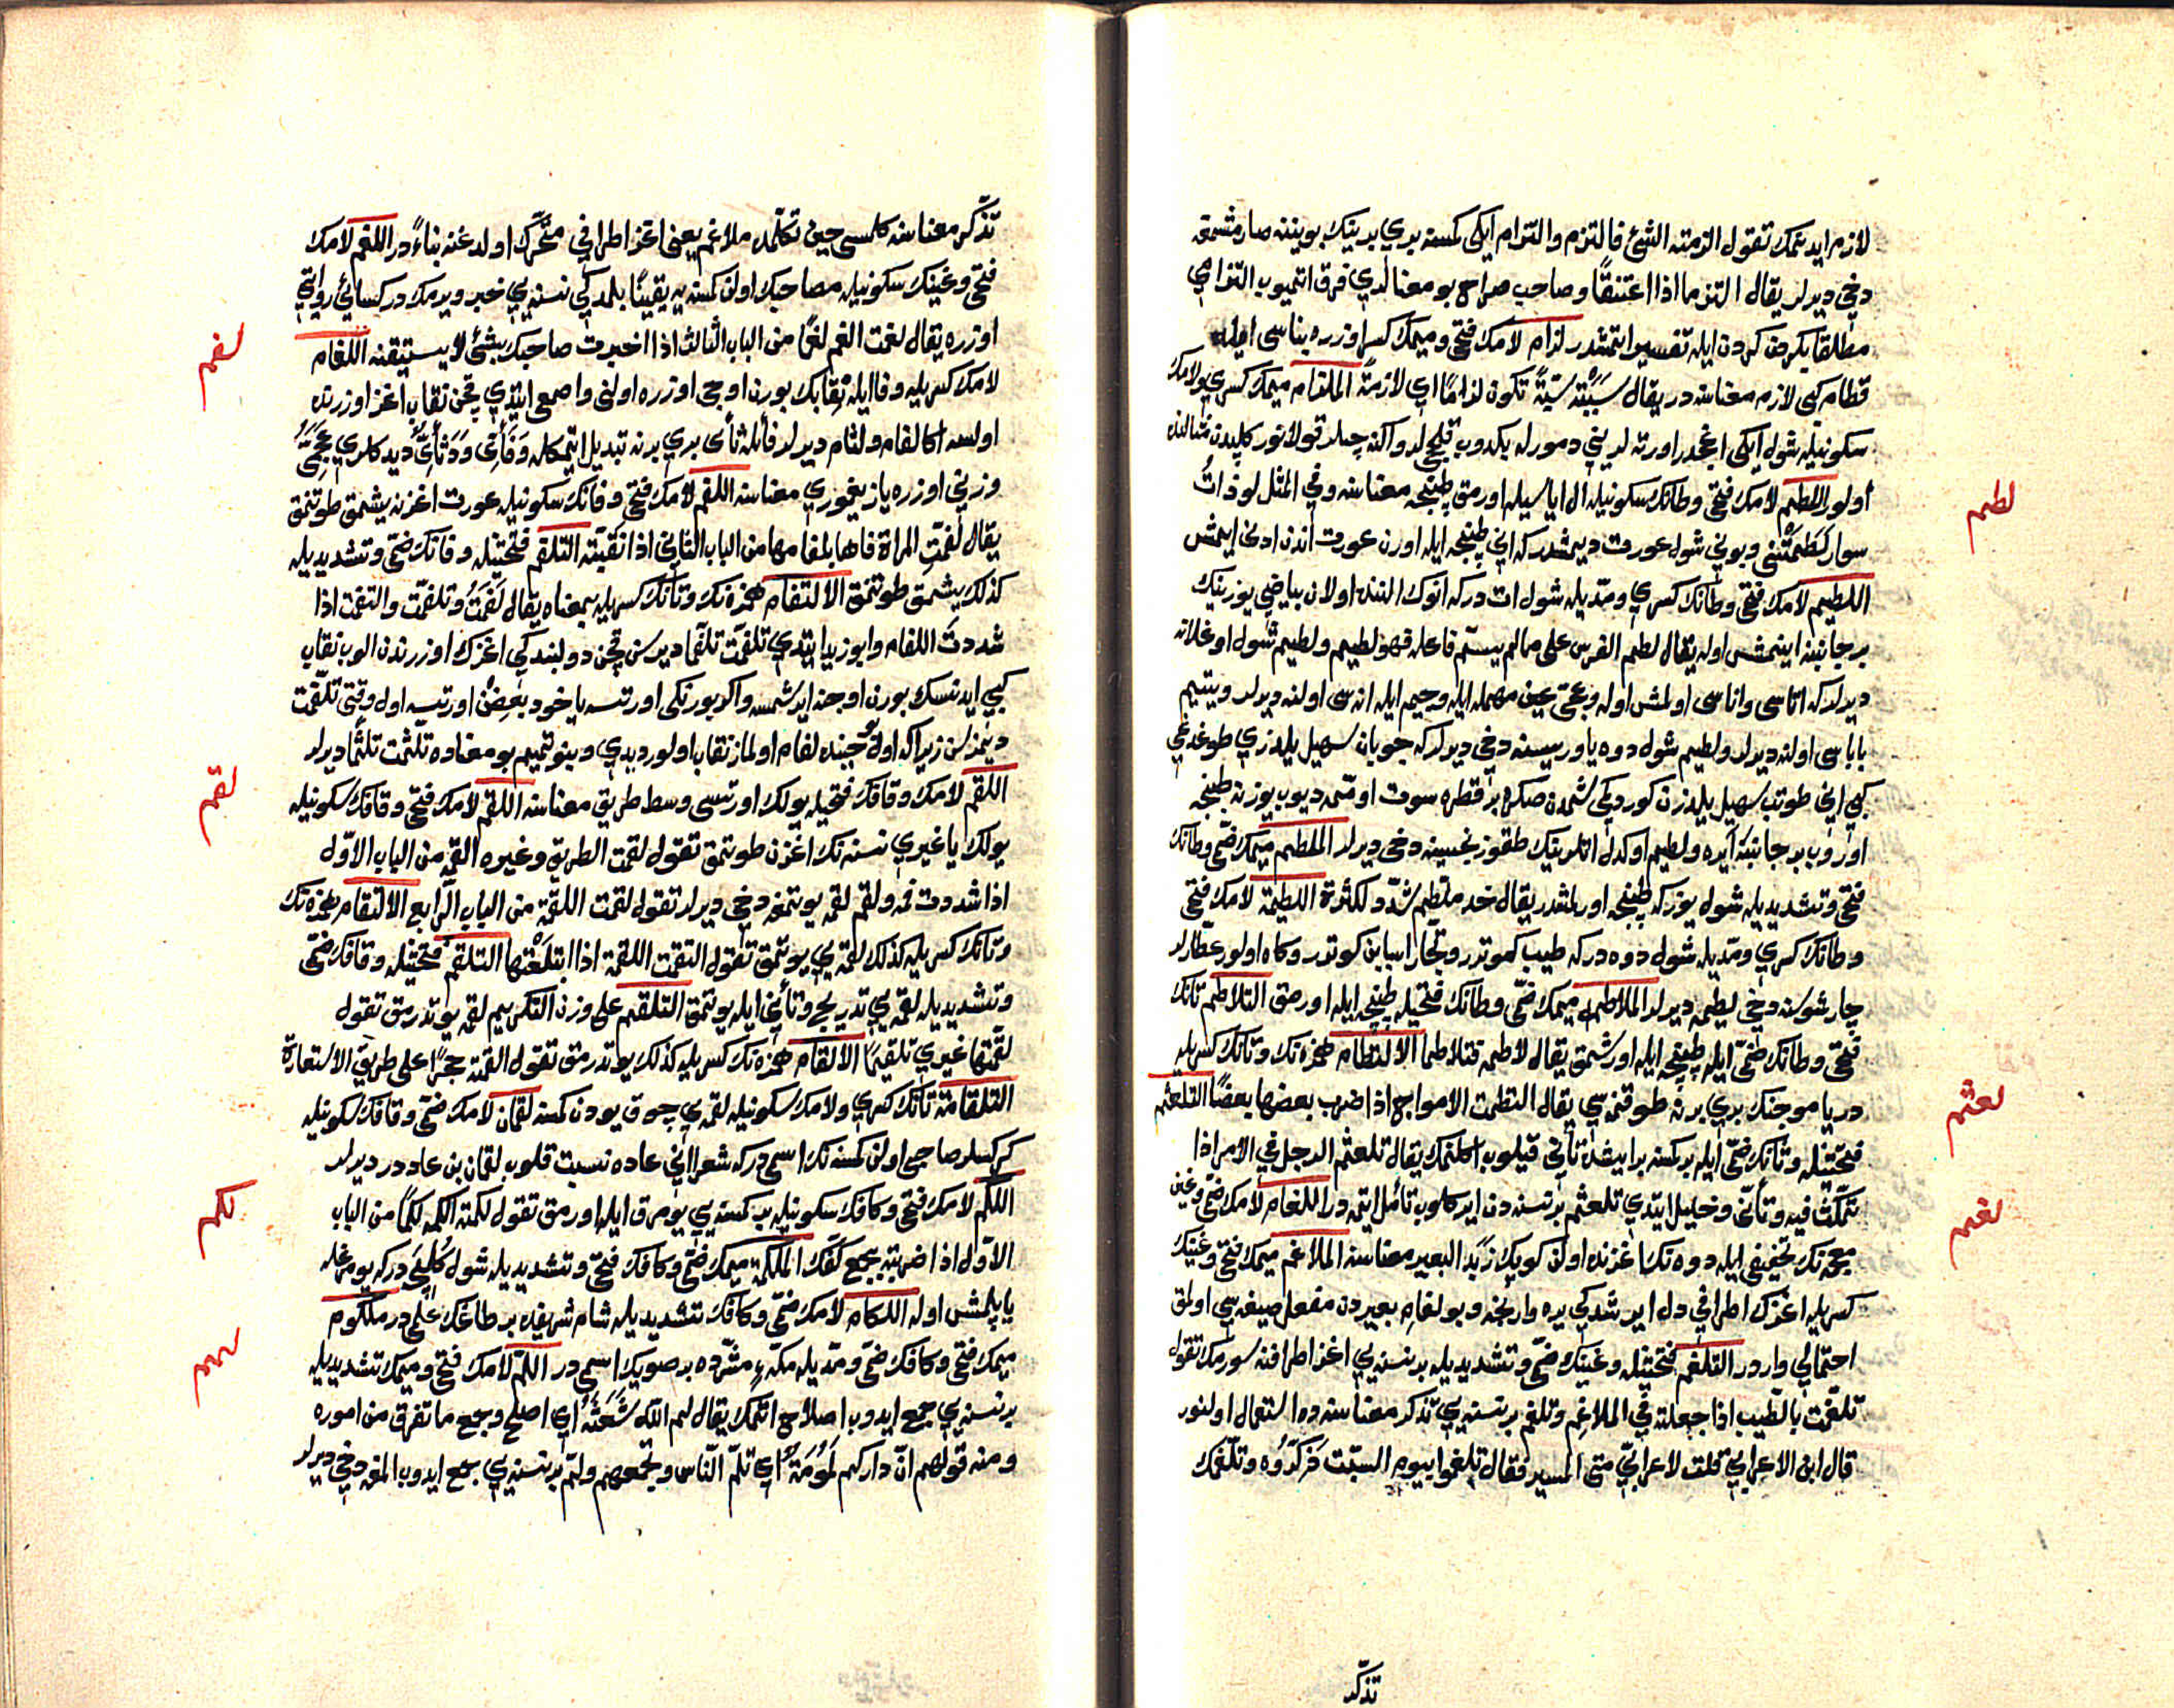 لازم ايدنمك تقول الزمته الشئ فالتزم والتزام ايكى كمسنه بري برينك بويننه صارمشمغه
دخي ديرلر يقال التزما اذا اعتنقا وصاحب صراح بو معنالري فرق اتميوب التزامي
مطلقا بكرمن كردن ايله تفسير ايتمشدر لزام لامك فتحي وميمك كسري اوزره بناسى ايله
قطام كبى لازم معناسنه در يقال سببته سبة تكون لزام اي لازمة الملزام ميمك كسري ولامك
سكونيله شول ايكى اغجدر اورته لريني دمورله بكدوب قلجلر واكنه چيلر قوللانور
اولور اللطم لامك فتحي وطانك سكونيله ال اياسيله اورمق طپنچه معناسنه وفي المثل لو ذات
سوار لطمتني وبوني شول عورت ديمشدر كه اني طپنچه ايله اورن عورت اندن ادنى ايمش
اللطيم لامك فتحي وطانك كسري ومديله شول ات دركه انوك النندن اولان بياضي يوزينك
بر جانبنه اينمش اوله يقال لطم الفرس على ما لم يسم فاعله فهو لطيم ولطيم شول اوغلانه
ديرلر كه اتاسى واناسى اولمش اوله وعجي عين مهمله ايله وجيم ايله اناسى اولنه ديرلر ويتيم
باباسى اولنه ديرلر ولطيم شول دوه ياوريسنه دخي ديرلر كه چوبان سهيل يلدزي طوغدغي
كبي اني طوتب سهيل يلدزن كوررميكى شمدن صكره بر قطره سوت اومه ديوب يوزينه طپنچه
اوروب بر جانبنه ايره ولطيم اوكدل اتلرينك طقوزنجيسنه دخي ديرلر الملطم ميمك ضمي وطانك
فتحي وتشديديله شول يوزكه طپنچه اورلمشدر يقال خد ملطم شدد للكثرة اللطيمة لامك فتحي
وطانك كسري ومديله شول دوه دركه طيب كوتورر وتجار اسبابن كوتورر وكاه اولور عطارلر
چارشوسنه دخي لطيمه ديرلر الملاطمة ميمك ضمي وطانك فتحيله طپنچه ايله اورمق التلاطم تانك
فتحي وطانك ضمي ايله طپنچه ايله اورشمق يقال لاطمه فتلاطما الالتطام همزه نك وتانك كسريله
دريا موجنك بري برنه طوقنمسي يقال التطمت الامواج اذا ضرب بعضها بعضا التلعثم
فتحتيله وثانك ضمي ايله بر كمسنه بر ايشده تأني قيلوب اكلنمك يقال تلعثم الرجل في الامر اذا
تمكث فيه وتأنى وخليل ايتدي تلعثم بر نسنه دن ايركلوب تأمل ايتمه در اللغام لامك ضمي وغين
معجمه نك تخفيفي ايله دوه نك اغزنده اولن كوپك زبد البعير معناسنه الملاغم ميمك فتحي وغينك
كسريله اغزك اطرافي دل ايرشدكي يره وارنجه وبو لغام بعيردن مفعل صيغه سي اولمق
احتمالي واردر التلغم فتحتيله وغينك ضمي وتشديديله بر نسنه يي اغز اطرافنه سورمك تقول
تلغمت بالطيب اذا جعلته في الملاغم وتلغم بر نسنه يي تذكر معناسنه ده استعمال اولنور
قال ابن الاعرابي قلت لاعرابي متى المسير فقال تلغموا بيوم السبت فذكروه وتلغمك
تذكر
لطم
لعثم
لغم
تذكر معناسنه كلمسى حين تكلمده ملاغم يعني اغز اطرافي متحرك اولدغنه بناء در اللغم لامك
فتحي وغينك سكونيله مصاحبك اولن كمسنه يه يقينا بلمدكي نسنه يي خبر ويرمك در كسائي روايتي
اوزره يقال لغمت الغم لغما من الباب الثالث اذا اخبرت صاحبك بشئ لا يستيقنه اللفام
لامك كسريله وفا ايله نقابك بورن اوجى اوزره اولنى واصمعى ايتدي قچن نقاب اغز اوزرنده
اولسه اكا لفام ولثام ديرلر فأيله ثأى بري برنه تبديل ايتمكله
وزني اوزره ياز يغموري معناسنه اللفم لامك فتحي وفانك سكونيله عورت اغزنه يشمق طوتنمق
يقال لفمت المراة فاها بلفامها من الباب الثاني اذا نقبته التلفم فتحتيله وفانك ضمي وتشديديله
كذلك يشمق طوتنمق الالتفام همزه نك وتانك كسريله بمعناه يقال لفمت وتلفمت والتفمت اذا
شددت اللفام وابو زيد ايتدي تلفمت تلفما ديرسن قچن دولبندكي اغزك اوزرندن الوب نقاب
كبي ايدنسك بورن اوجنه ايرشمسه واكر بورنكى اورتسه ياخود بعضن اورتسه اول وقتى تلفمت
ديمزسن زيرا كه اول حينده لفام اولماز نقاب اولور ديدي وبنو تميم بو معناده تلثمت تلثما ديرلر
اللقم لامك وقافك فتحيله يولك اورتسى وسط طريق معناسنه اللقم لامك فتحي وقافك سكونيله
يولك يا غيري نسنه نك اغزن طوتمق تقول لقمت الطريق وغيره القمه من الباب الاول
اذا شددت فمه ولقم لقمه يوتمغه دخي ديرلر تقول لقمت اللقمة من الباب الرابع الالتقام همزه نك
وتانك كسريله كذلك لقمه يي يوتمق تقول التقمت اللقمة اذا ابتلعتها التلقم فتحتيله وقافك ضمي
وتشديديله لقمه يي تدريج وتأني ايله يوتمق التلقيم على وزن التكريم لقمه يوتدرمق تقول
لقمتها غيري تلقيما الالقام همزه نك كسريله كذلك يوتدرمق تقول القمته حجرا على طريق الاستعارة
التلقامة تانك كسري ولامك سكونيله لقمه يي چوق يودن كمسنه لقمان لامك ضمي وقافك سكونيله
كركسلر صاحبى اولن كمسنه نك اسمى در كه شعرا اني عاده نسبت قلوب لقمان بن عاد در ديرلر
اللكم لامك فتحي وكافك سكونيله بر كمسنه يي يومرق ايله اورمق تقول لكمته الكمه لكما من الباب
الاول اذا ضربته بجمع كفك الملكمة ميمك ضمي وكافك فتحي وتشديديله شول كليچه در كه يومرغله
ياپلمش اوله اللكام لامك ضمي وكافك تشديديله شام شهرنده بر طاغك علمى در ملكوم
ميمك فتحي وكافك ضمي ومديله مكه مشرفه ده بر صويك اسمى در اللم لامك فتحي وميمك تشديديله
بر نسنه يي جمع ايدوب اصلاح اتمك يقال لم الله شعثه اي اصلح وجمع ما تفرق من اموره
ومنه قولهم ان داركم لمومة اي تلم الناس وتجمعهم ولم بر نسنه يي جمع ايدوب المغه دخي ديرلر
لفم
لقم
لكم
لمم